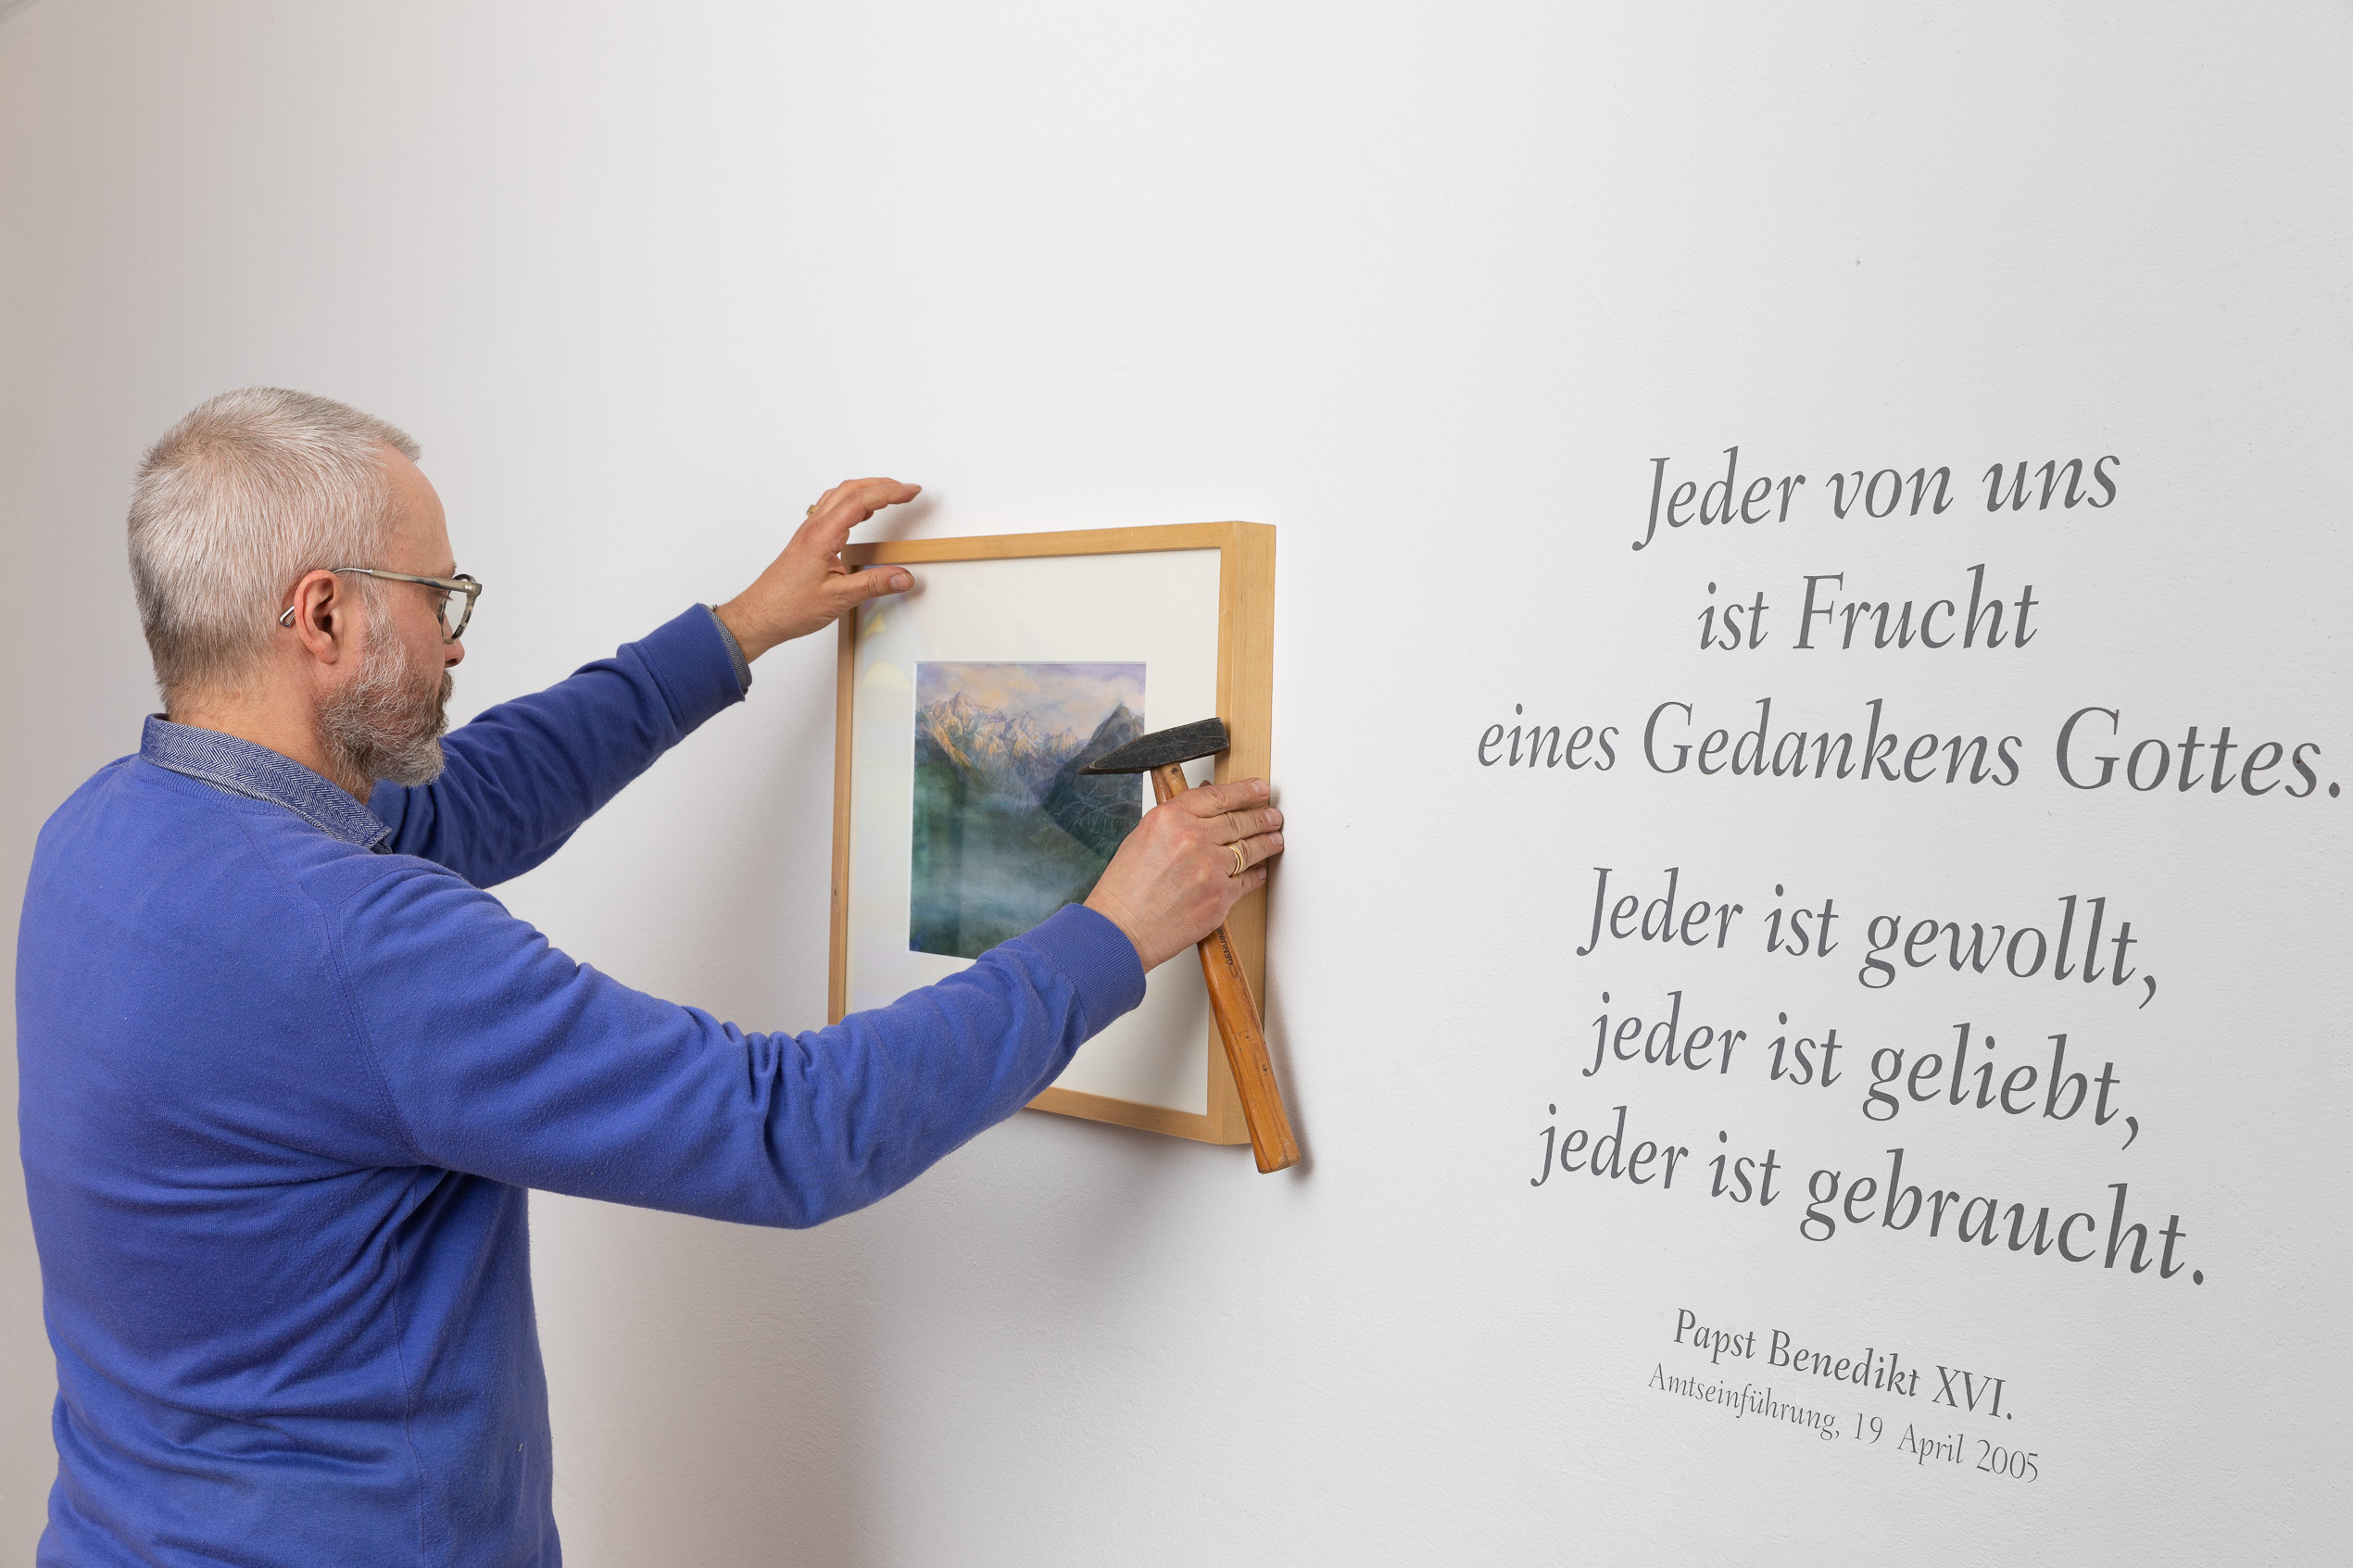 Jeder von uns
ist Frucht
eines Gedankens Gottes.
Jeder ist gewollt,
jeder ist geliebt,
jeder ist gebraucht.
Papst Benedikt XVI.
Amtseinführung, 19 April 2005